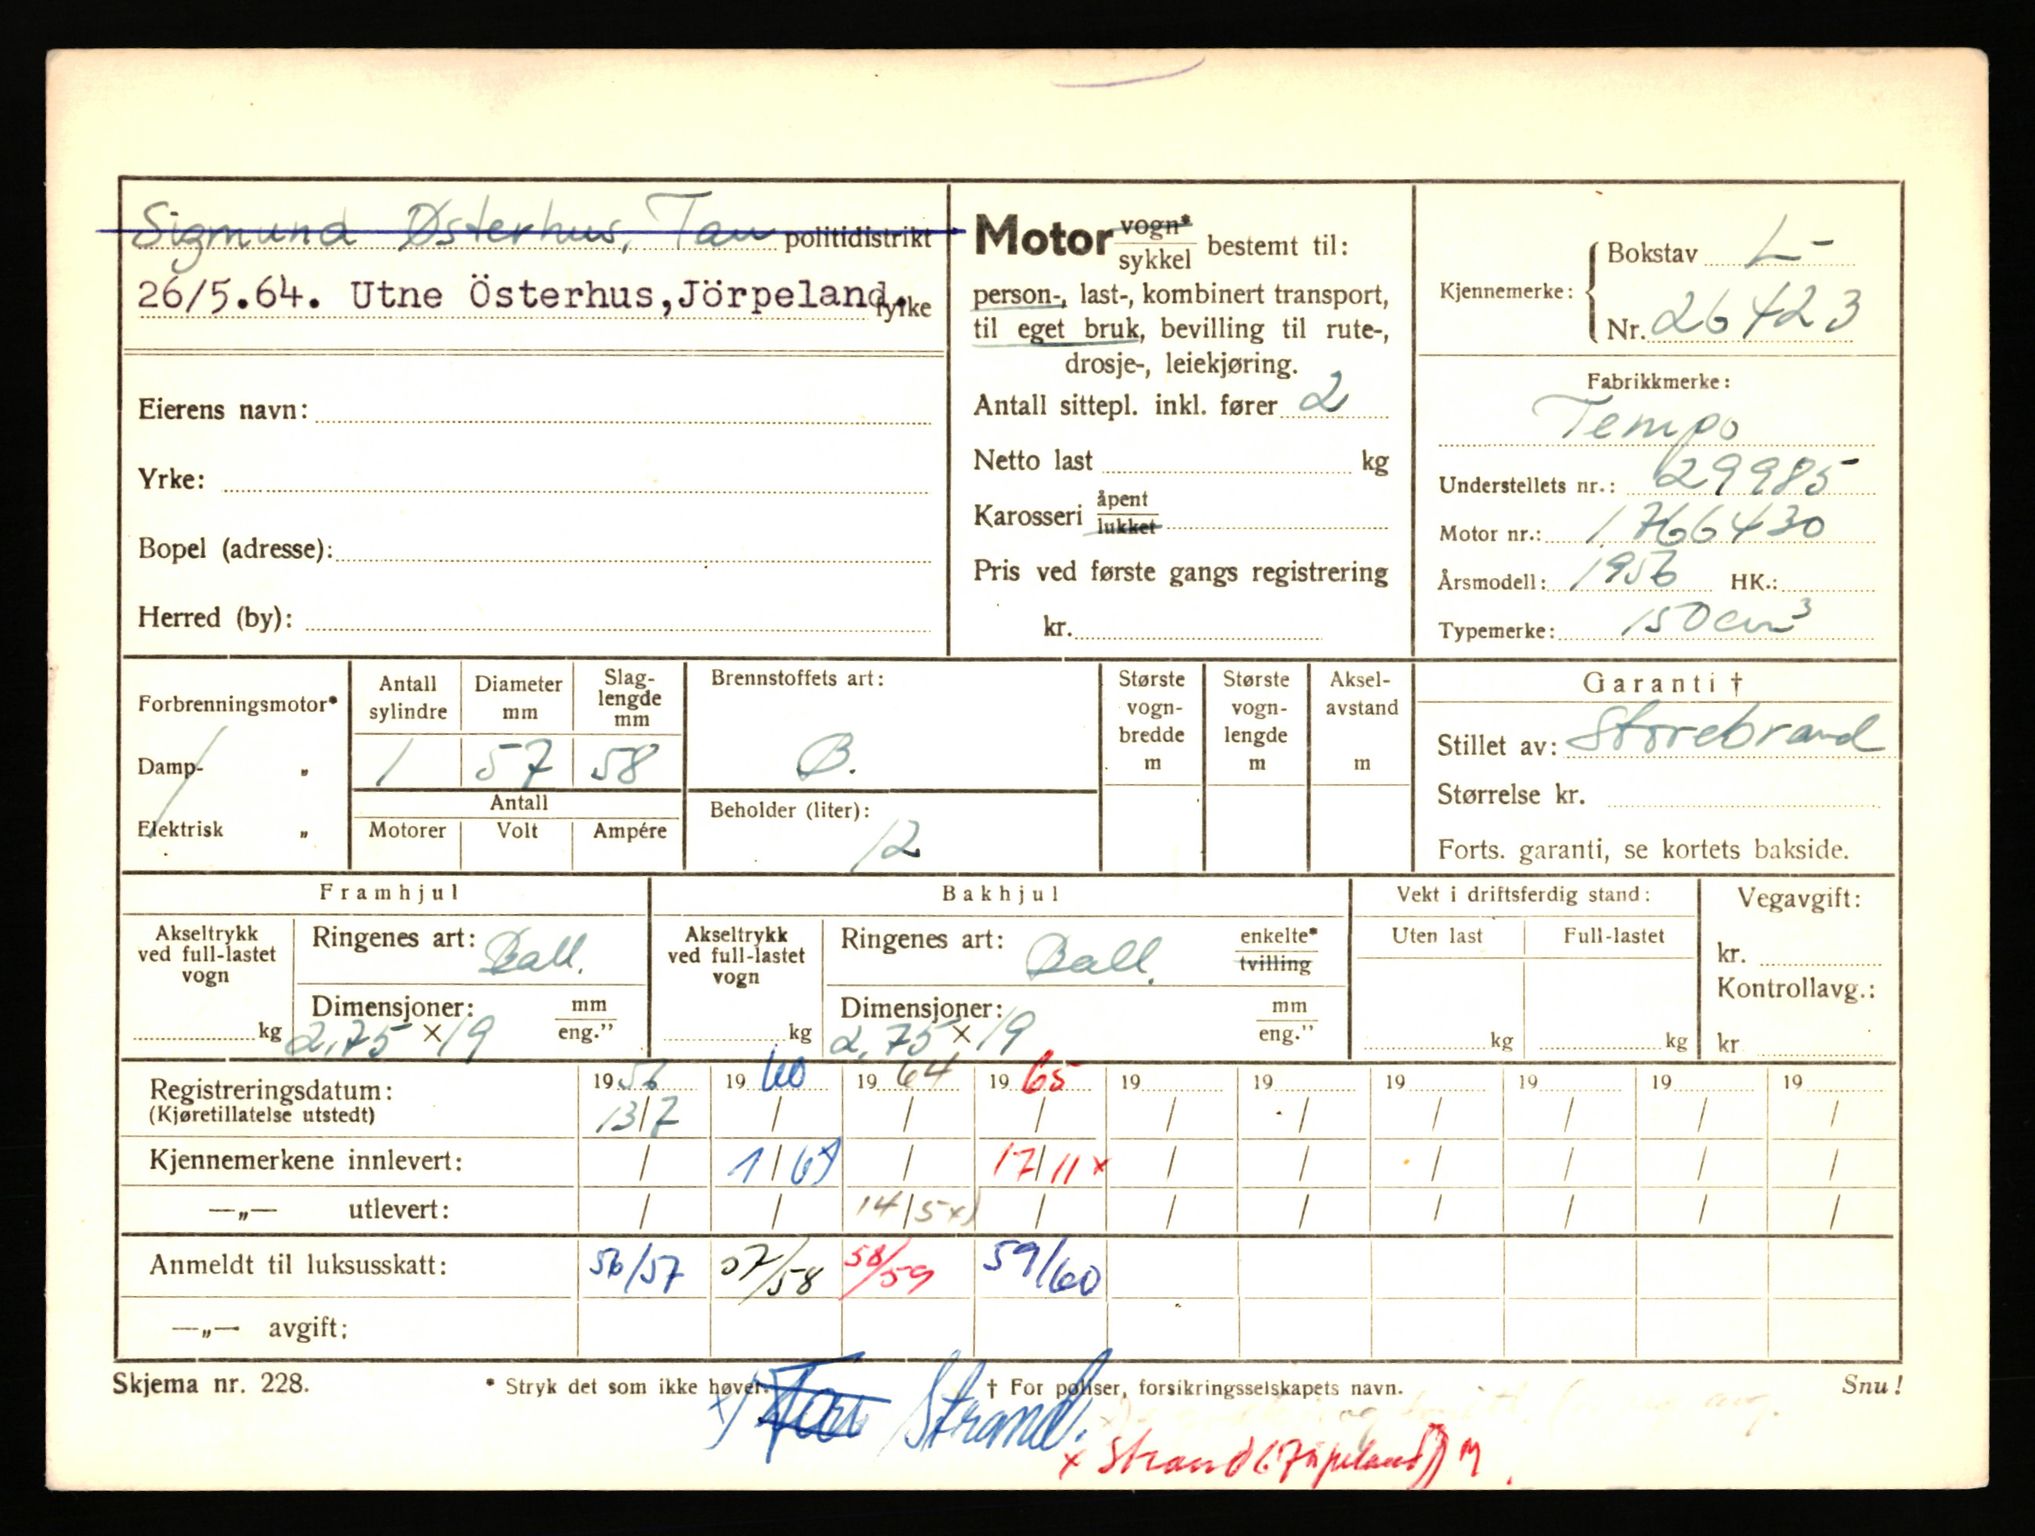 Sigmund Østerhus, Tau politidistrikt
26/5.64. Utne Österhus, Jörpeland. fylke
Eierens navn:
Yrke:
Bopel (adresse):
Herred (by):
Motor vogn* sykkel bestemt til:
person-, last-, kombinert transport,
til eget bruk, bevilling til rute-,
drosje-, leiekjøring.
Antall sittepl. inkl. fører 2
Netto last kg
Karosseri åpent lukket
Pris ved første gangs registrering
kr.
Kjennemerke: Bokstav L-
Nr. 26423
Fabrikkmerke:
Tempo
Understellets nr.: 29985
Motor nr.: 1766430
Årsmodell: 1956 HK.:
Typemerke: 150 cm³
Forbrenningsmotor*
Damp- „
Elektrisk „
Antall sylindre Diameter mm Slaglengde mm
1 57 58
Antall
Motorer Volt Ampére
Brennstoffets art:
B.
Beholder (liter):
12
Største vogn-bredde m
Største vogn-lengde m
Aksel-avstand m
Garanti †
Stillet av: Storebrand
Størrelse kr.
Forts. garanti, se kortets bakside.
Framhjul
Akseltrykk ved full-lastet vogn
kg
Ringenes art: Ball.
Dimensjoner: mm eng."
2,75 × 19
Bakhjul
Akseltrykk ved full-lastet vogn
kg
Ringenes art: Ball. enkelte* tvilling
Dimensjoner: mm eng."
2,75 × 19
Vekt i driftsferdig stand:
Uten last Full-lastet
kg kg
Vegavgift:
kr.
Kontrollavg.:
kr
Registreringsdatum: 1956 1960 1964 1965 19 19 19 19 19 19
(Kjøretillatelse utstedt) 13/7 / / / / / / / / /
Kjennemerkene innlevert: / 1/6 x) / 17/11 x / / / / / /
—„— utlevert: / / 14/5 x) / / / / / / /
Anmeldt til luksusskatt: 56/57 57/58 58/59 59/60
—„— avgift:
Skjema nr. 228. * Stryk det som ikke høver. † For poliser, forsikringsselskapets navn. Snu!
x) Tau Strand.
x Strand (Jørpeland)